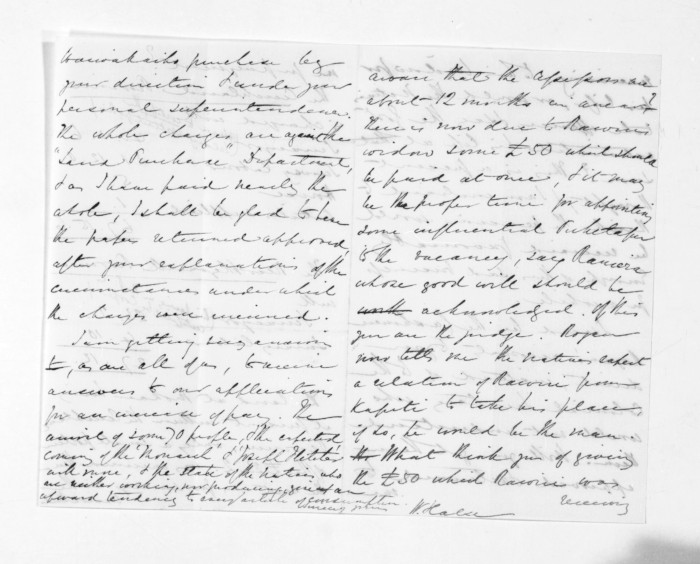 purchase by
your direction & under your
personal superintendence.
The whole charges are against the
"Land Purchase" Department,
& as I have paid nearly the
whole, I shall be glad to have
the paper returned approved
after your explanations of the
circumstances under which
the charges were incurred.
I am getting very anxious
to, as are all of us, to receive
answers to our applications
for an increase of pay. The
arrival of some 70 people, & the expected
coming of the & Joseph Fletcher
with more, & the state of the natives who
are neither working nor producing, gives an
upward tendency to every article of consumption.
aware that the assessors are
about 12 months in arrear?
There is now due to Rawiri's
widow some £50 which should
be paid at once, & it may
be the proper time for appointing
some influential Puketapu
to the vacancy, say
whose good will should be
acknowledged. Of this
you are the judge. Rogan
now tells me the natives expect
a relation of Rawiri from
Kapiti to take his place
if so, he would be the man
What think you of giving
the £50 which Rawiri was
receiving
W. Halse